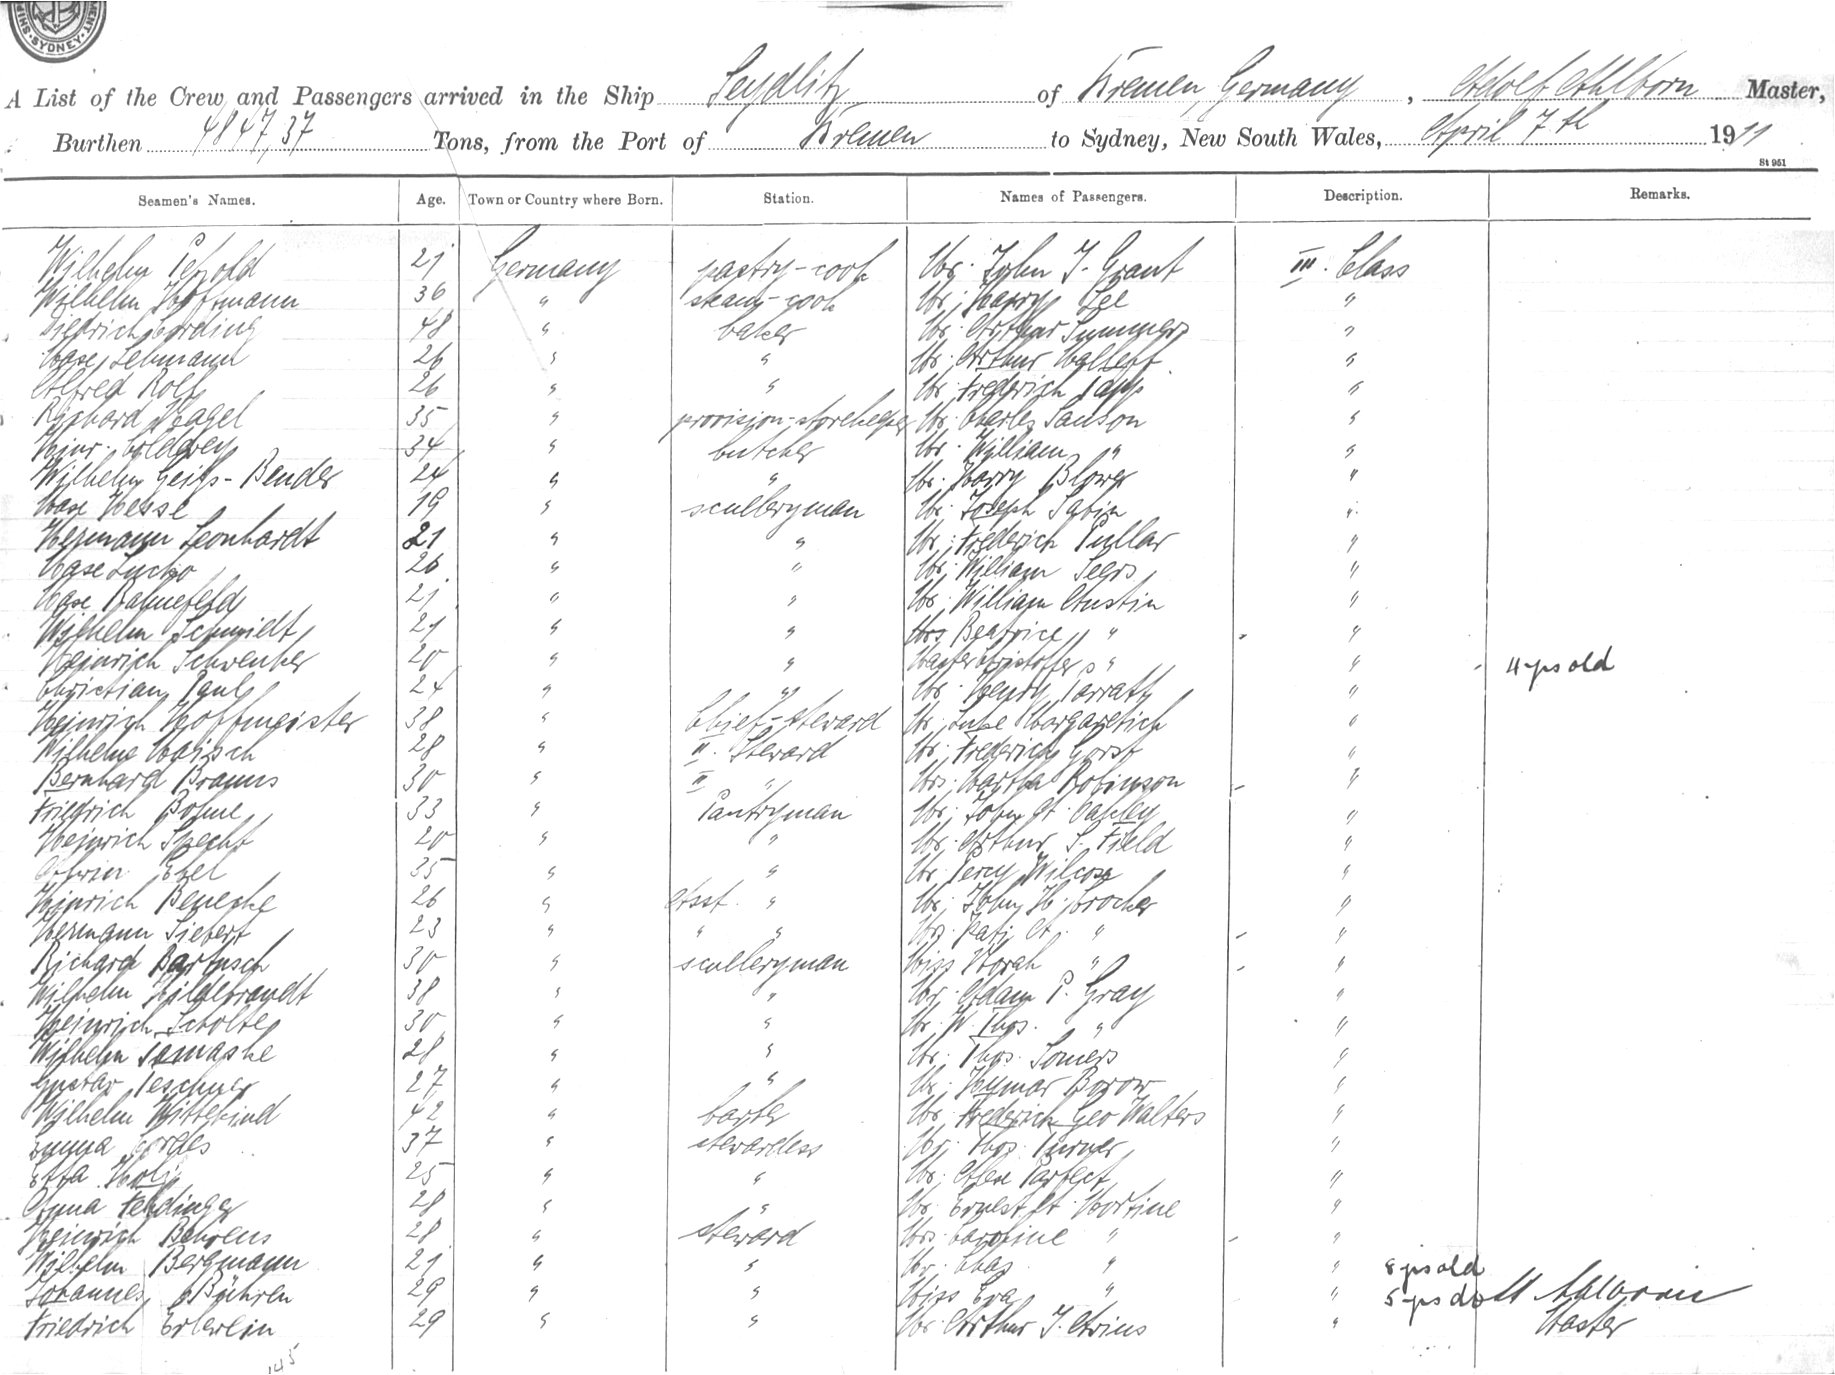 SYDNEY
A List of the Crew and Passengers arrived in the Ship Seydlitz of Bremen, Germany, Adolf Ahlborn Master,
Burthen 4847,37 Tons, from the Port of Bremen to Sydney, New South Wales, April 7th 1911
St 951
Seamen's Names. Age. Town or Country where Born. Station. Names of Passengers. Description. Remarks.
Wilhelm Petzold 21 Germany pastry-cook Mr. John J. Grant III. Class
Wilhelm Hoffmann 36 " steam-cook Mr. Harry Lee "
Diedrich Cording 48 " baker Mr. Arthur Summers "
Max Lehmann 26 " " Mr. Arthur "
Alfred Rolf 26 " " Mr. Frederich "
Richard Nagel 35 " provision-storekeeper Mr. Charles Sanson "
Hinr. 34 " butcher Mr. William " "
Wilhelm Geiss-Bender 24 " " Mr. Harry Blower "
Max Hesse 19 " sculleryman Mr. Joseph Sabin "
Hermann Leonhardt 21 " " Mr. Frederich Pullar "
Max 26 " " Mr. William "
Max Bahnefeld 21 " " Mr. William Austin "
Wilhelm Schmidt 21 " " Mrs Beatrice " "
Heinrich Schwenker 20 " " Master Christoffer " " 4 yrs old
Christian Paul 24 " " Mr. Henry Parratt "
Heinrich Hoffmeister 38 " Chief-steward Mr. Luke Margaretich "
Wilhelm 28 " II. Steward Mr. Frederich Gorst "
Bernhard Brauns 30 " II " Mrs. Martha Robinson "
Friedrich Bohne 33 " Pantryman Mr. John A. Oakley "
Heinrich Specht 20 " " Mr. Arthur S. Field "
Ebel 35 " " Mr. Percy Wilcox "
Hinrich Beneche 26 " Asst. " Mr. John H. Crocker "
Hermann Siebert 23 " " " Mrs. Katj A. " "
Richard Bartusch 30 " sculleryman Miss Norah " "
Wilhelm Hildebrandt 38 " " Mr. Adam P. Gray "
Heinrich Scholte 30 " " Mr. W. Thos. " "
Wilhelm Tomaske 28 " " Mr. Thos. Somers "
Gustav Teschner 27 " " Mr. Hymar Borow "
Wilhelm Wittekind 42 " barber Mr. Frederich Geo Walters "
Emma Cordes 37 " stewardess Mr. Thos. Turner "
Etta 25 " " Mr. Alex Partect "
Anna Fehdinger 28 " " Mr. Ernest A. Mortine "
Heinrich Behrens 28 " steward Mrs. Caroline " "
Wilhelm Bergmann 21 " " Mr. Chas. " " 8 yrs old
Johannes Bühren 29 " " Miss Eva " " 5 yrs do A. Ahlborn
Friedrich Erlerlein 29 " " Mr. Arthur J. " Master
145